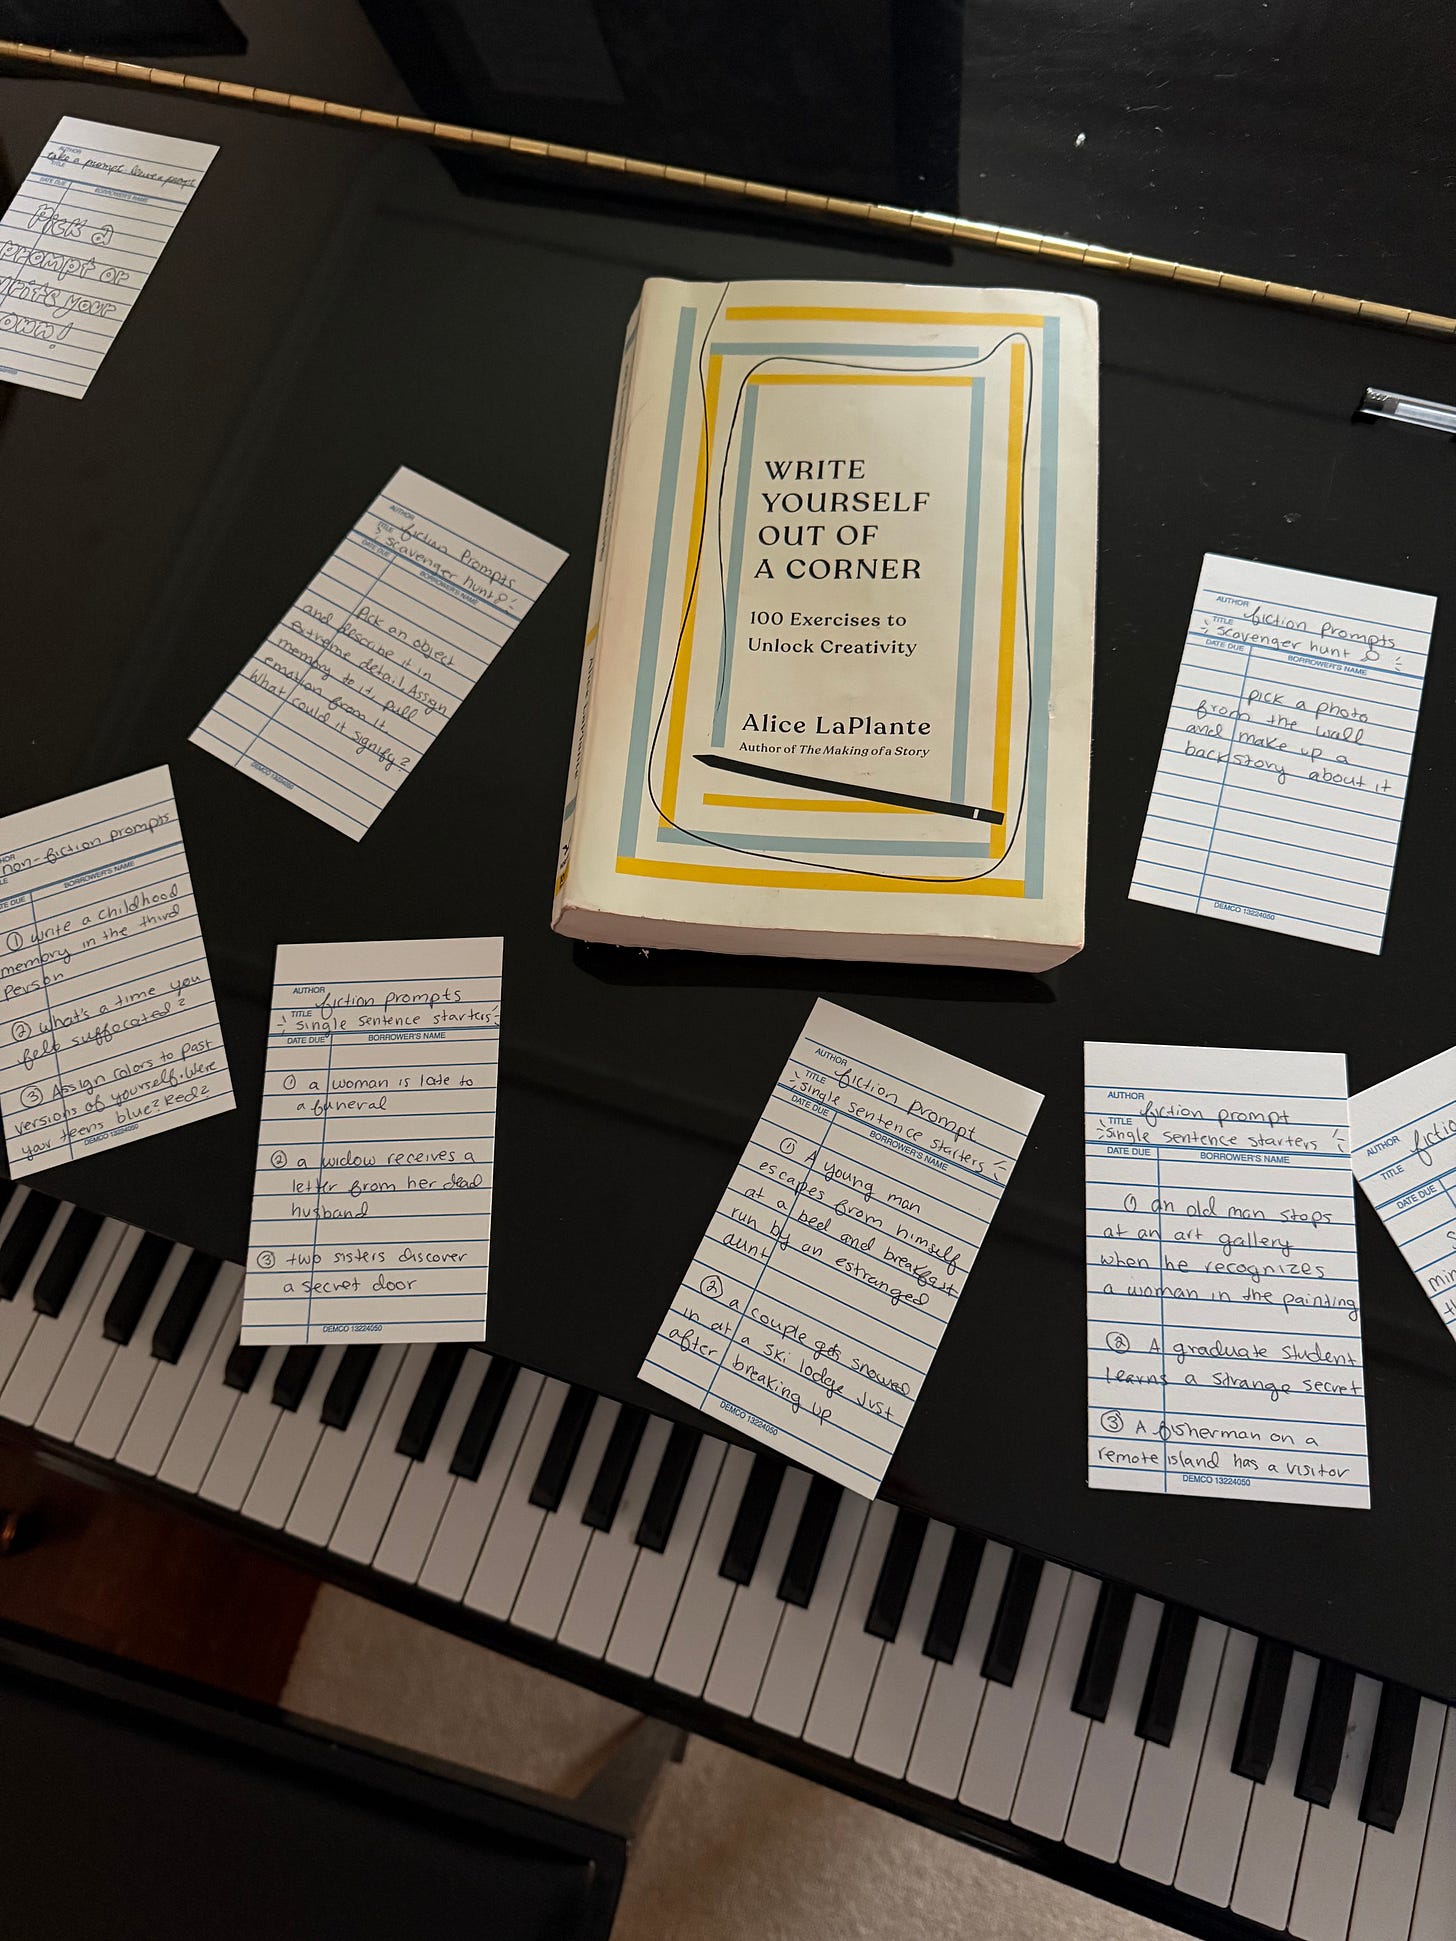 AUTHOR
take a prompt leave a prompt
TITLE
DATE DUE BORROWER'S NAME
Pick a
prompt or
write your
own!
AUTHOR
TITLE fiction Prompts
scavenger hunt
DATE DUE BORROWER'S NAME
Pick an object
and describe it in
extreme detail. Assign
memory to it, pull
emotion from it.
What could it signify?
DEMCO 13224050
WRITE
YOURSELF
OUT OF
A CORNER
100 Exercises to
Unlock Creativity
Alice LaPlante
Author of The Making of a Story
AUTHOR
TITLE fiction prompts
scavenger hunt
DATE DUE BORROWER'S NAME
pick a photo
from the wall
and make up a
backstory about it
DEMCO 13224050
non-fiction prompts
BORROWER'S NAME
① write a childhood
memory in the third
person
② what's a time you
felt suffocated?
③ Assign colors to past
versions of yourself. Were
your teens blue? Red?
DEMCO 13224050
AUTHOR
fiction prompts
TITLE
single sentence starters
DATE DUE BORROWER'S NAME
① a woman is late to
a funeral
② a widow receives a
letter from her dead
husband
③ two sisters discover
a secret door
DEMCO 13224050
AUTHOR
TITLE fiction prompt
single sentence starters
DATE DUE BORROWER'S NAME
① A young man
escapes from himself
at a bed and breakfast
run by an estranged
aunt
② a couple gets snowed
in at a ski lodge just
after breaking up
DEMCO 13224050
AUTHOR
fiction prompt
TITLE
single sentence starters
DATE DUE BORROWER'S NAME
① an old man stops
at an art gallery
when he recognizes
a woman in the painting
② A graduate student
learns a strange secret
③ A fisherman on a
remote island has a visitor
DEMCO 13224050
AUTHOR
TITLE
DATE DUE